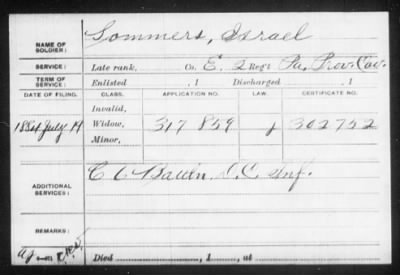 NAME OF SOLDIER: Sommers, Israel
SERVICE: Late rank, Co. E, 2 Reg't Pa. Prov. Cav.
TERM OF SERVICE: Enlisted , 1 Discharged , 1
DATE OF FILING. CLASS. APPLICATION NO. LAW. CERTIFICATE NO.
Invalid,
1884 July 14 Widow, 317 859 302752
Minor,
ADDITIONAL SERVICES: D.C. Inf.
REMARKS:
Died , 1 , at